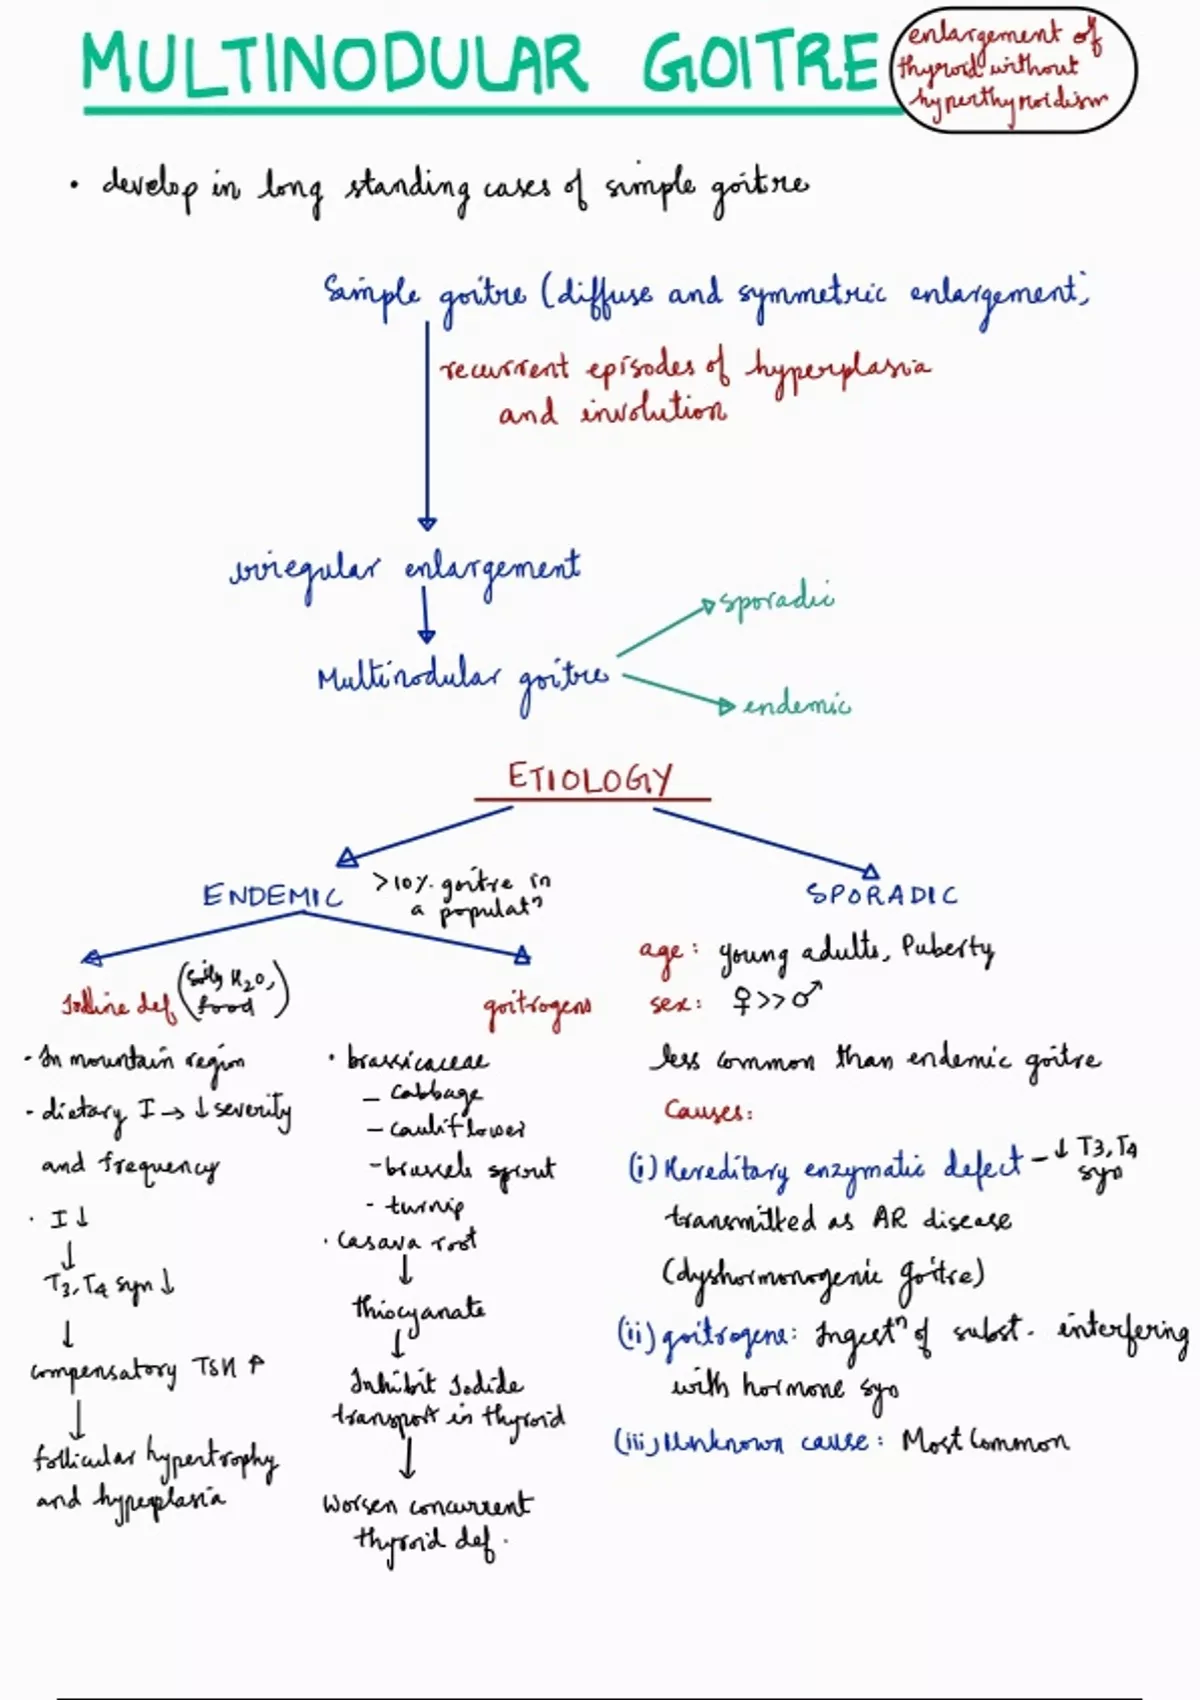 MULTINODULAR GOITRE
enlargement of
thyroid without
hyperthyroidism
• develop in long standing cases of simple goitre
Simple goitre (diffuse and symmetric enlargement)
recurrent episodes of hyperplasia
and involution
irregular enlargement
sporadic
Multinodular goitre
endemic
ETIOLOGY
ENDEMIC
>10% goitre in
a populatⁿ
SPORADIC
Iodine def (soil, H2O,
food)
goitrogens
- In mountain region
- dietary I → ↓ severity
and frequency
· I ↓
↓
T3, T4 syn ↓
↓
compensatory TSH ↑
↓
follicular hypertrophy
and hyperplasia
• brassicaceae
- cabbage
- cauliflower
- brussels sprout
- turnip
· Casava root
↓
thiocyanate
↓
Inhibit Iodide
transport in thyroid
↓
Worsen concurrent
thyroid def.
age: young adults, Puberty
sex: ♀>>♂
less common than endemic goitre
Causes:
(i) Hereditary enzymatic defect - ↓ T3, T4
syn
transmitted as AR disease
(dyshormonogenic goitre)
(ii) goitrogens: Ingestⁿ of subst. interfering
with hormone syn
(iii) Unknown cause: Most Common